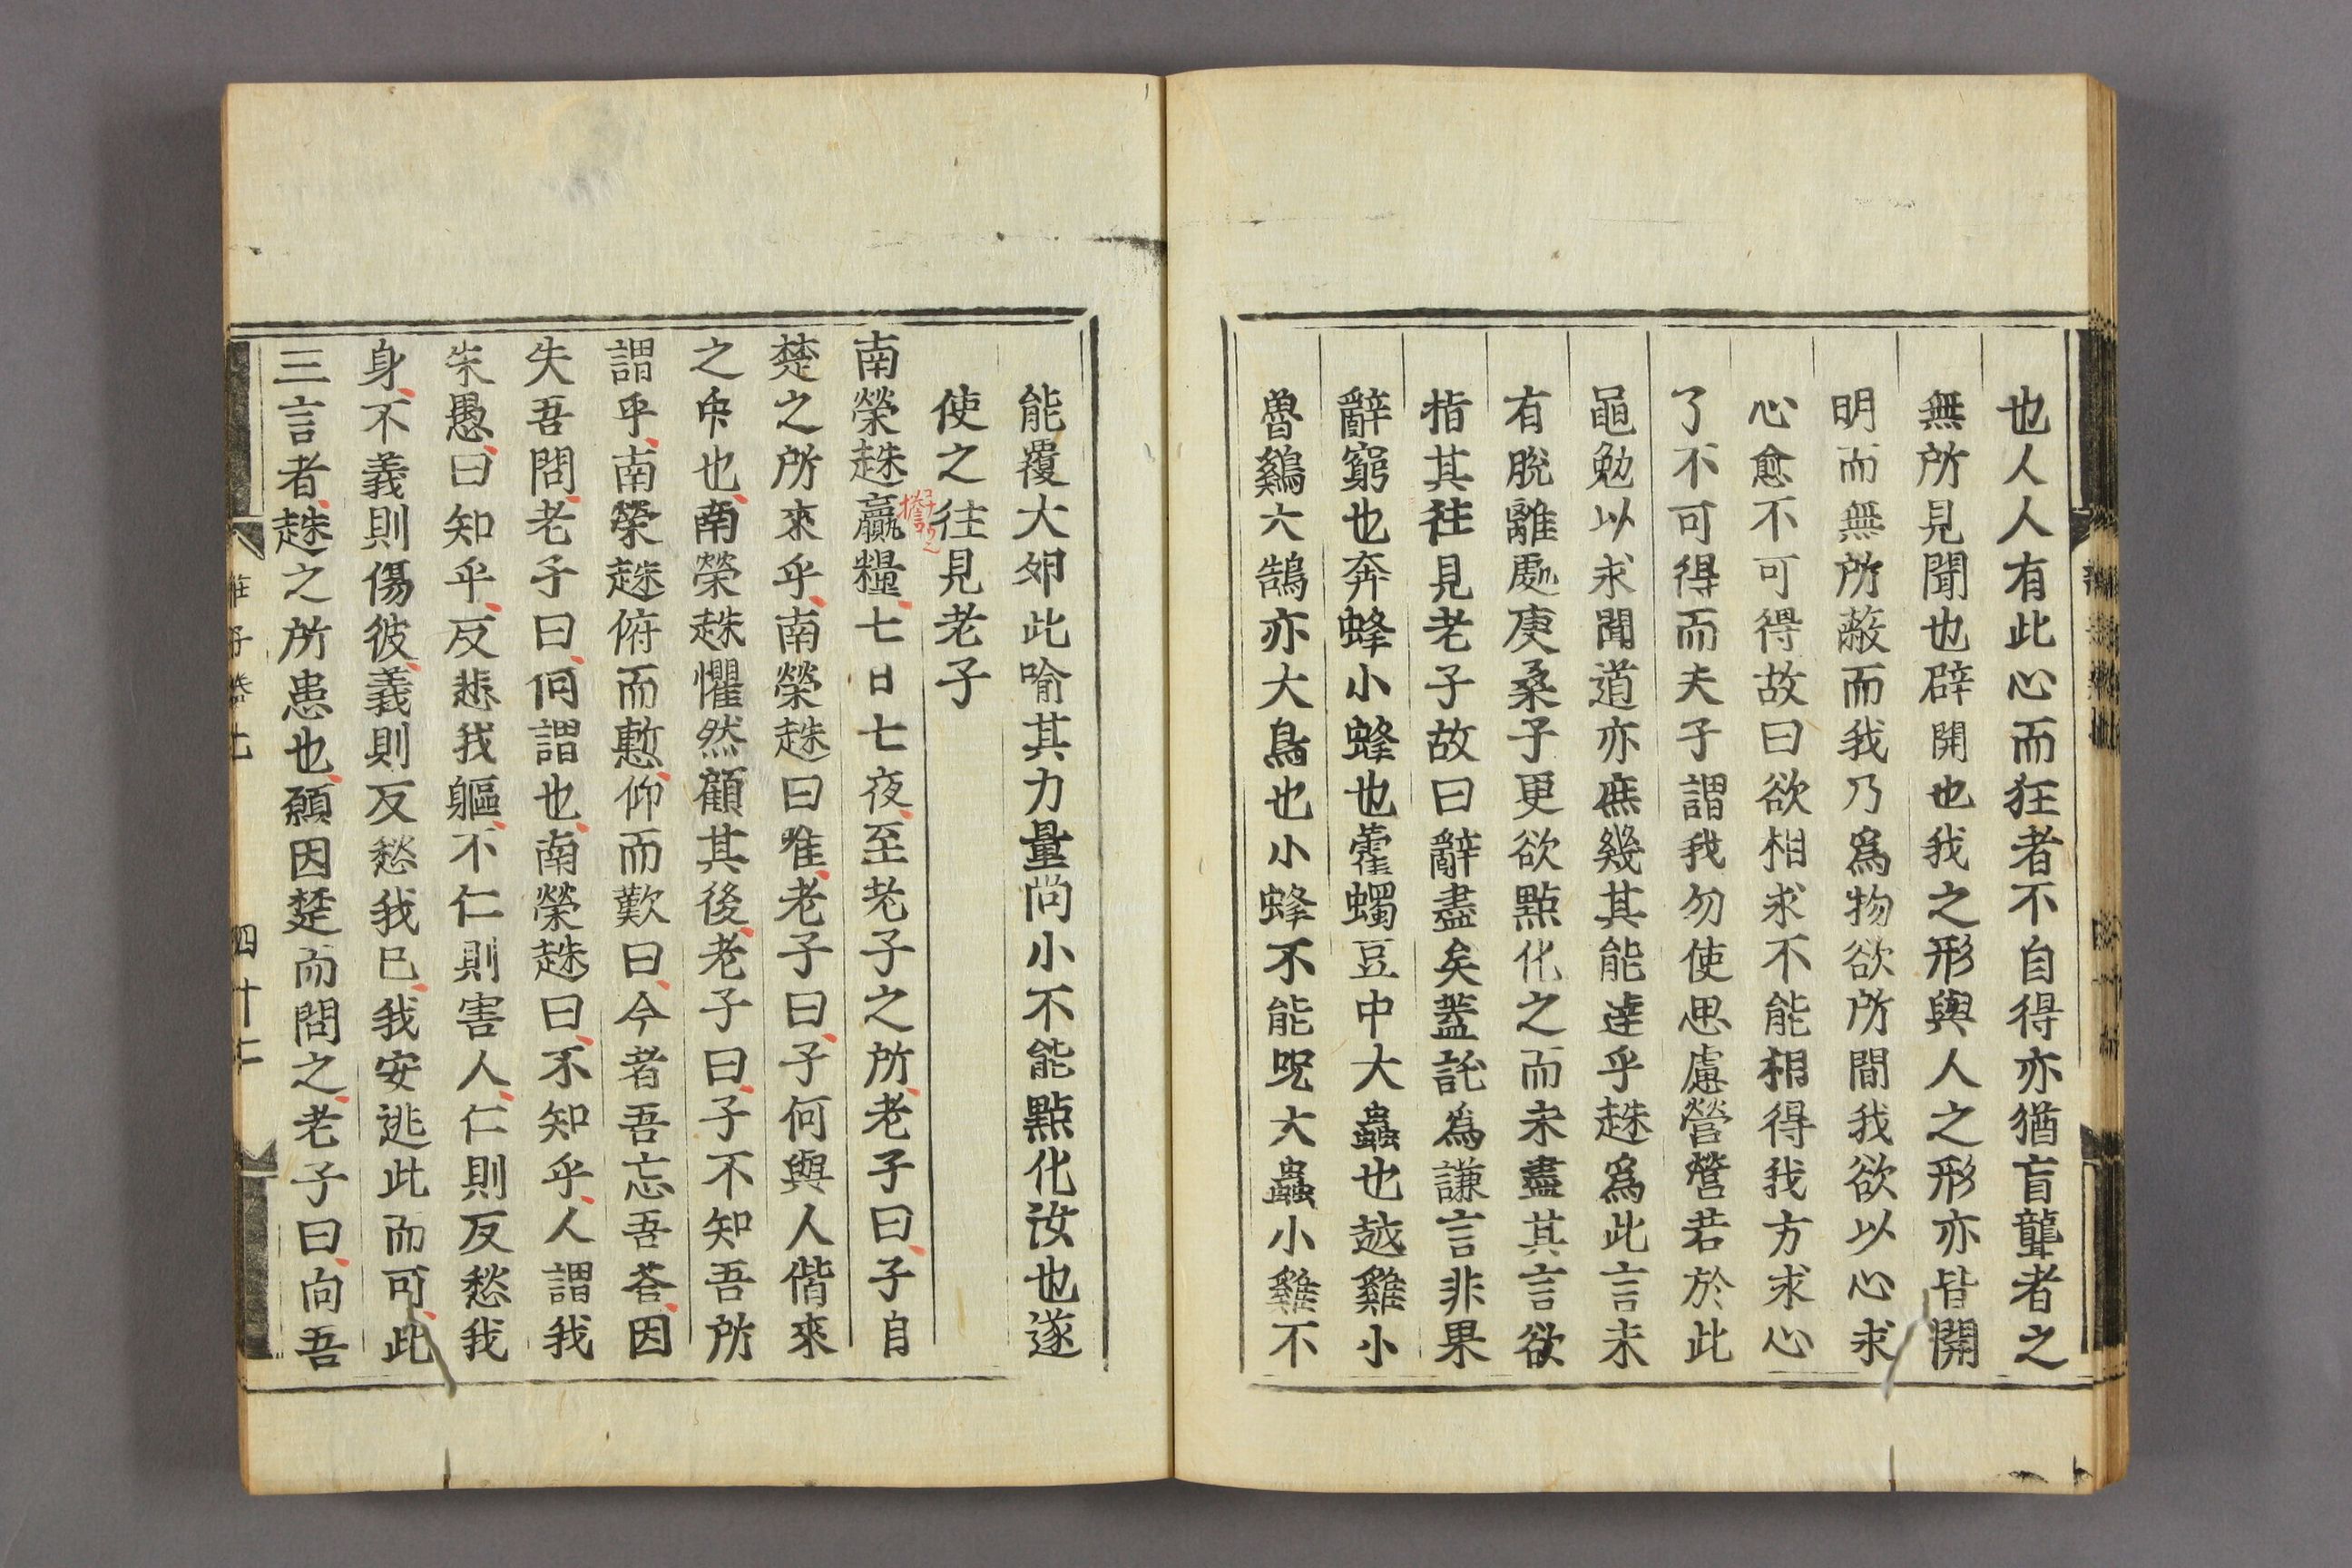 也人人有此心而狂者不自得亦猶盲聾者之
無所見聞也辟開也我之形與人之形亦皆開
明而無所蔽而我乃爲物欲所間我欲以心求
心愈不可得故曰欲相求不能相得我方求心
了不可得而夫子謂我勿使思慮營營若於此
黽勉以求聞道亦庶幾其能達乎趎爲此言未
有脫離處庚桑子更欲點化之而未盡其言欲
指其往見老子故曰辭盡矣蓋託為謙言非果
辭窮也奔蜂小蜂也藿蠋豆中大蟲也越雞小
魯鷄大鵠亦大鳥也小蜂不能呪大蟲小雞不
能覆大卵此喻其力量尚小不能點化汝也遂
使之往見老子
南榮趎贏糧七日七夜至老子之所老子曰子自
楚之所來乎南榮趎曰唯老子曰子何與人偕來
之衆也南榮趎懼然顧其後老子曰子不知吾所
謂乎南榮趎俯而慙仰而歎曰今者吾忘吾荅因
失吾問老子曰何謂也南榮趎曰不知乎人謂我
朱愚曰知乎反愁我軀不仁則害人仁則反愁我
身不義則傷彼義則反愁我已我安逃此而可此
三言者趎之所患也願因楚而問之老子曰向吾
莊子卷七
四十二